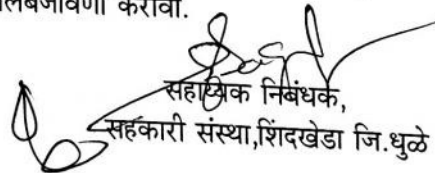 करावी.
सहाय्यक निबंधक,
सहकारी संस्था,शिंदखेडा जि.धुळे